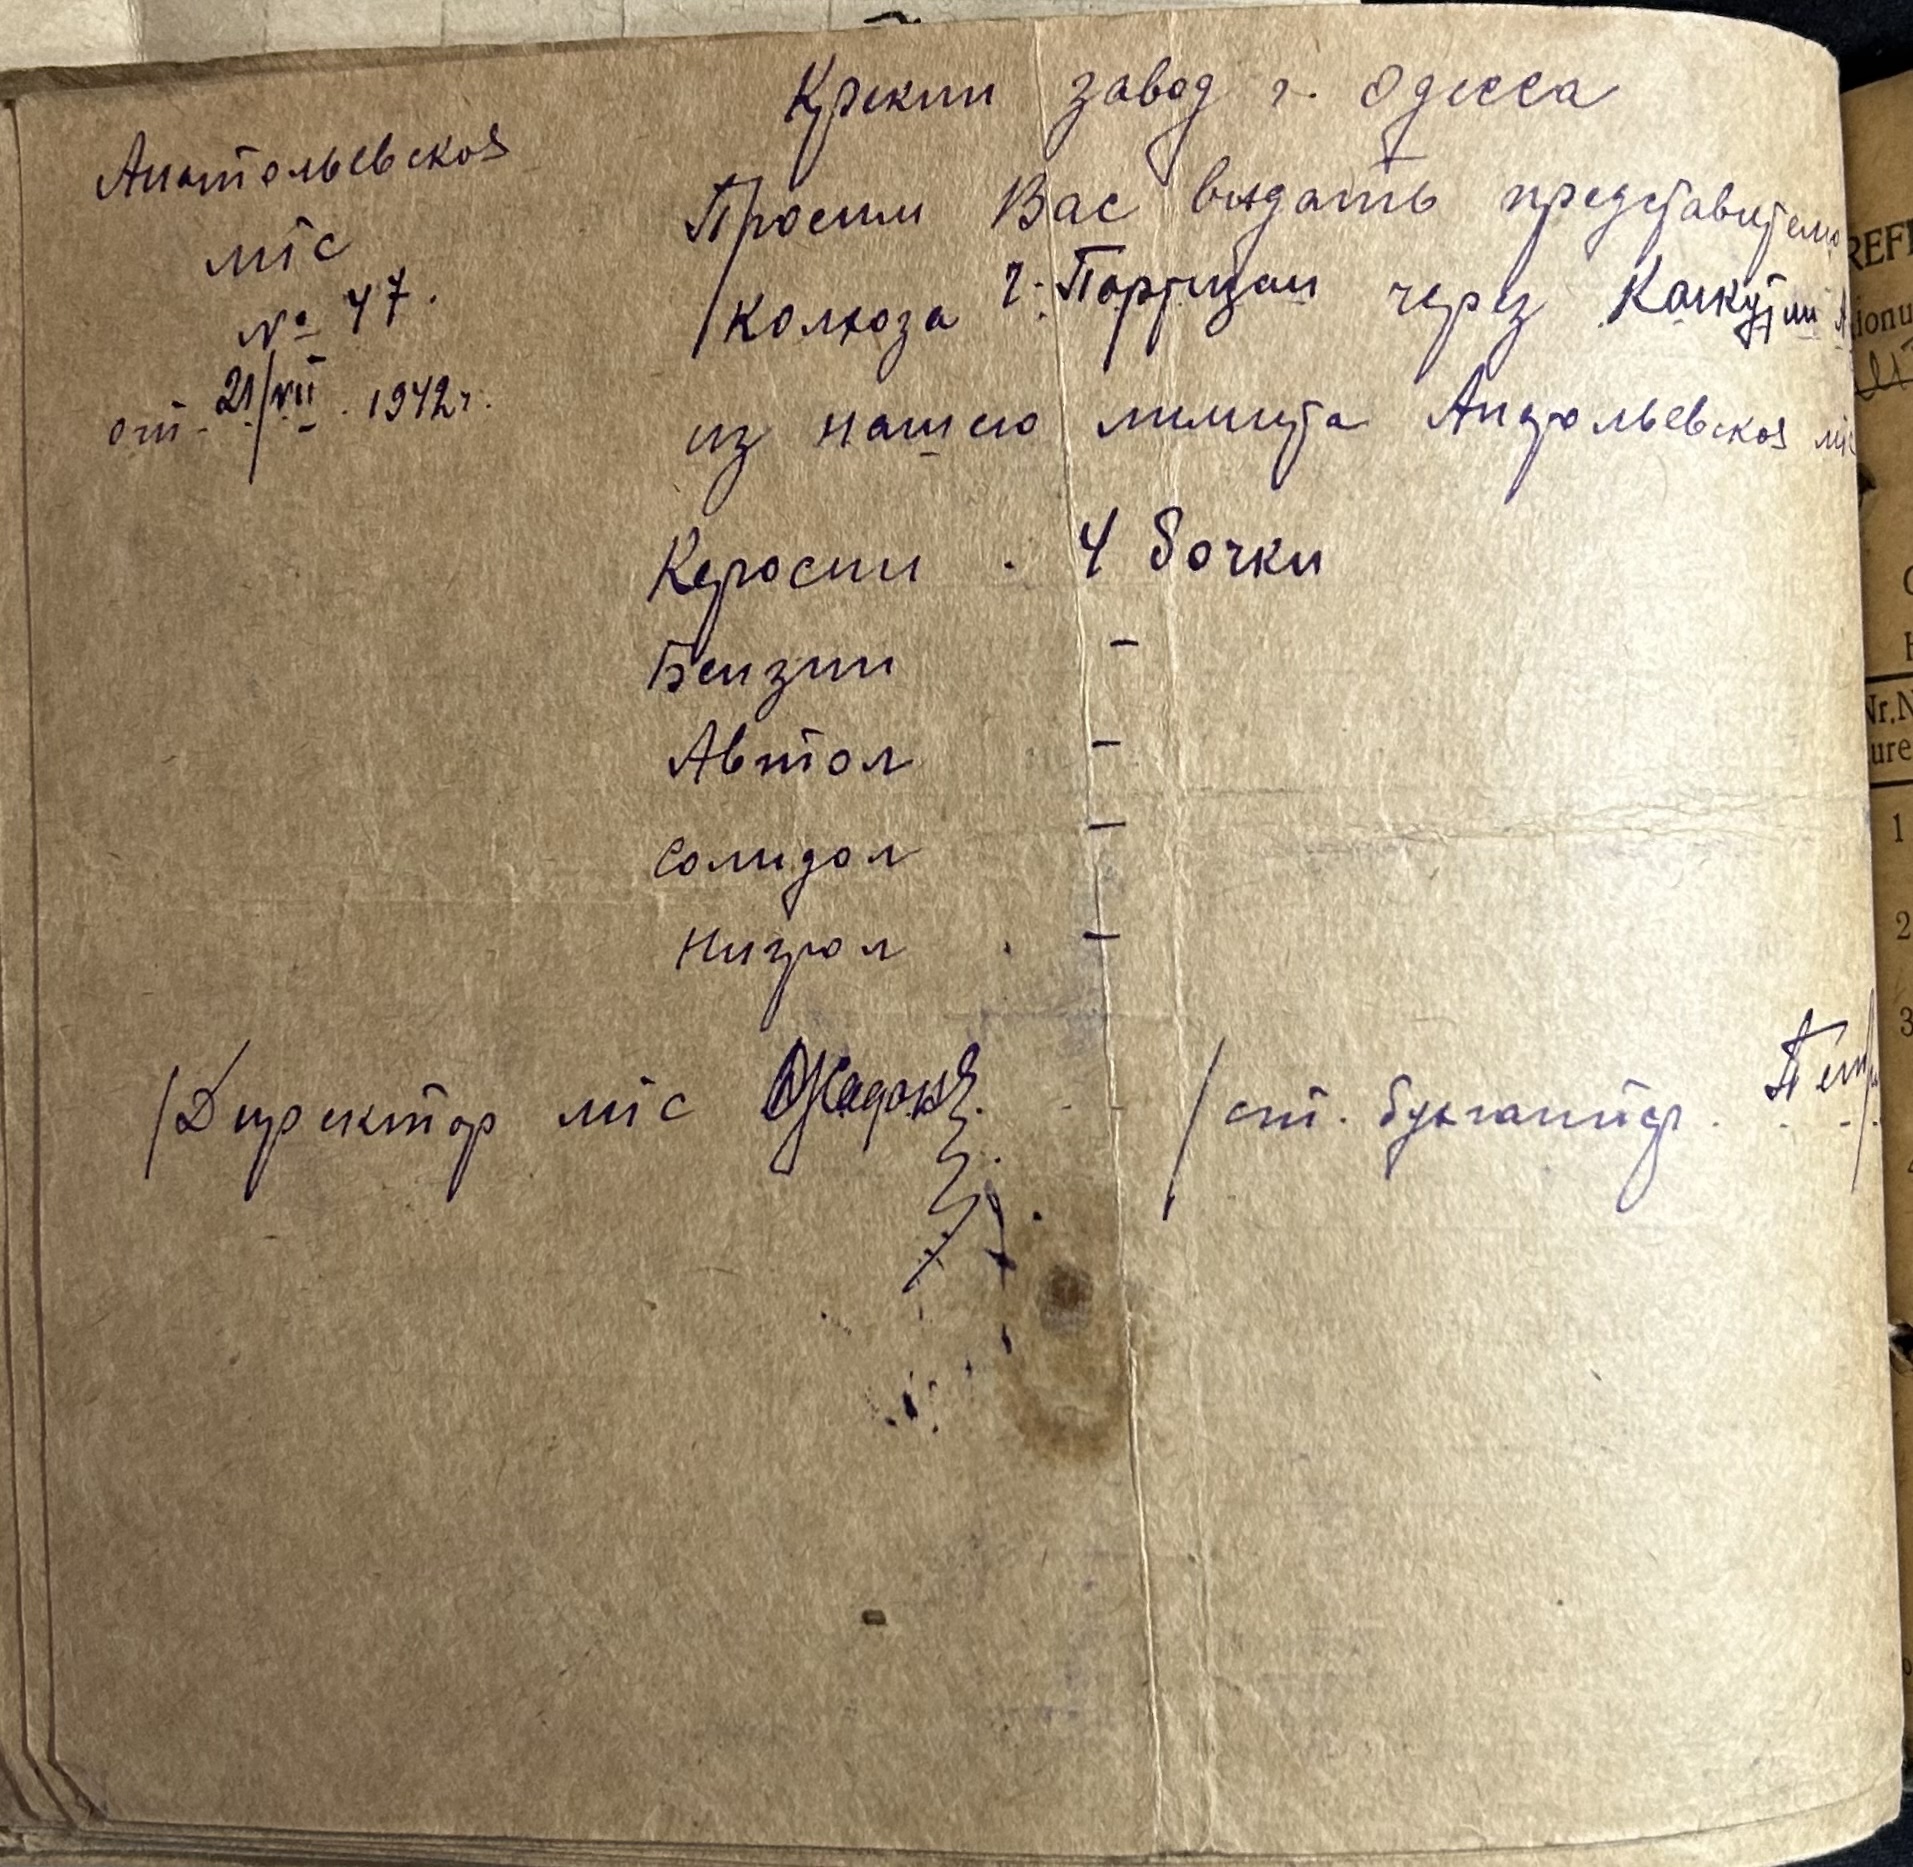 Крекин завод г. Одесса
Анатольевская
мтс
№ 47.
от 21/VII. 1942 г.
Просим Вас выдать представителю
колхоза "Партизан" через
из нашего лимита Анатольевской мтс
Керосин . 4 бочки
Бензин –
Автол –
Солидол –
Нигрол . –
/Директор мтс
/ст. бухгалтер.
REF
ionu
Nr.
ure
1
2
3